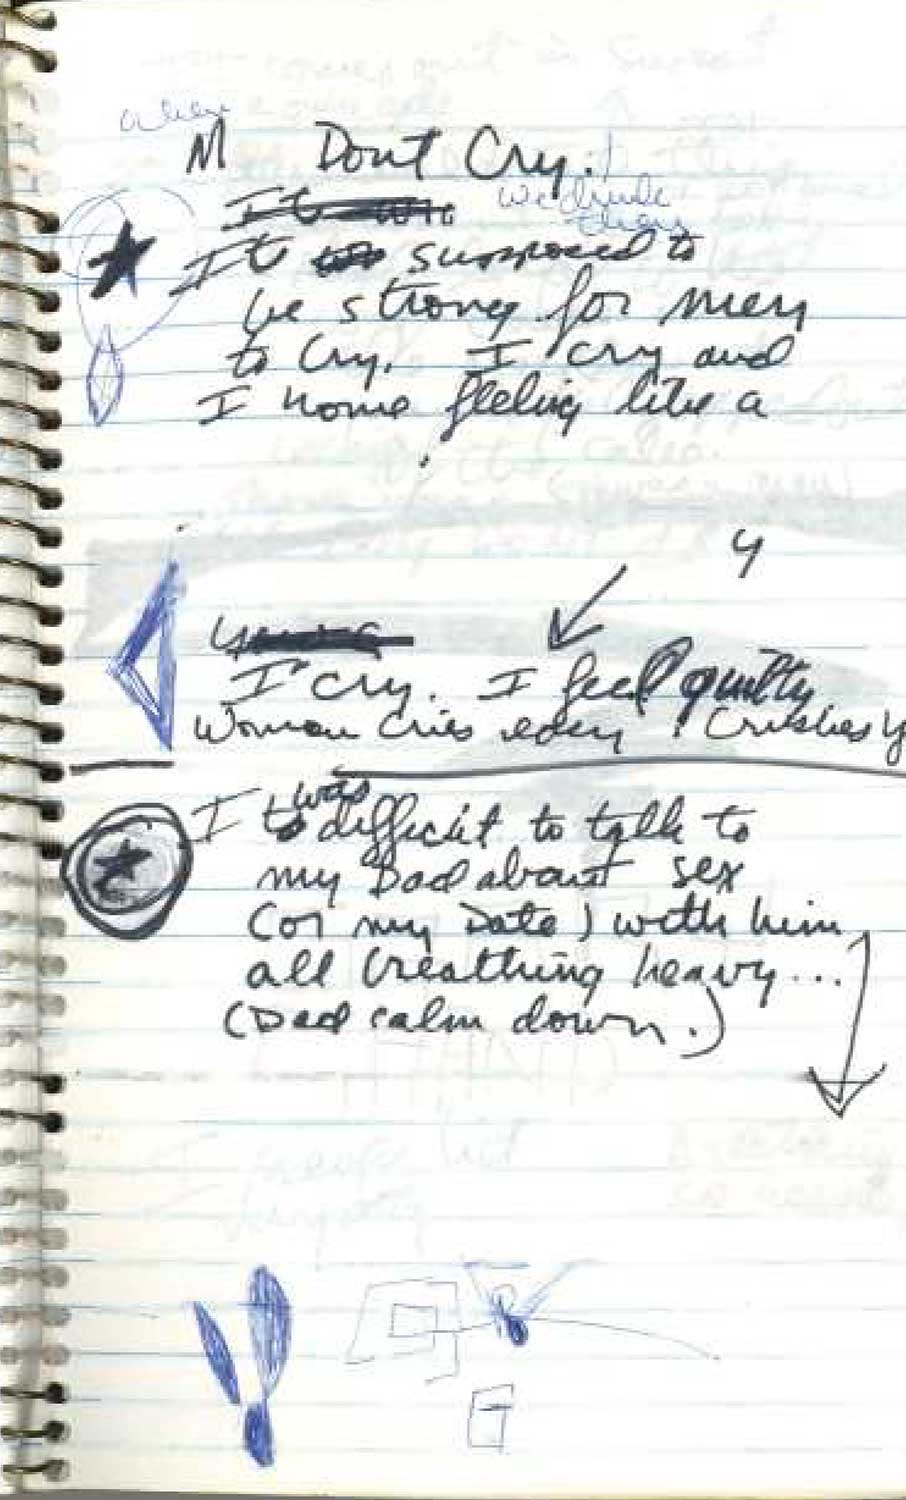 when
M Dont Cry.
We
It supposed to
be strong for men
to Cry. I cry and
I home feeling like a
4
I cry. I feel guilty
Woman Cries Crushes y
was
I to difficit to talk to
my Dad about sex
(or my Date) with him
all breathing heavy...
(Dad calm down.)